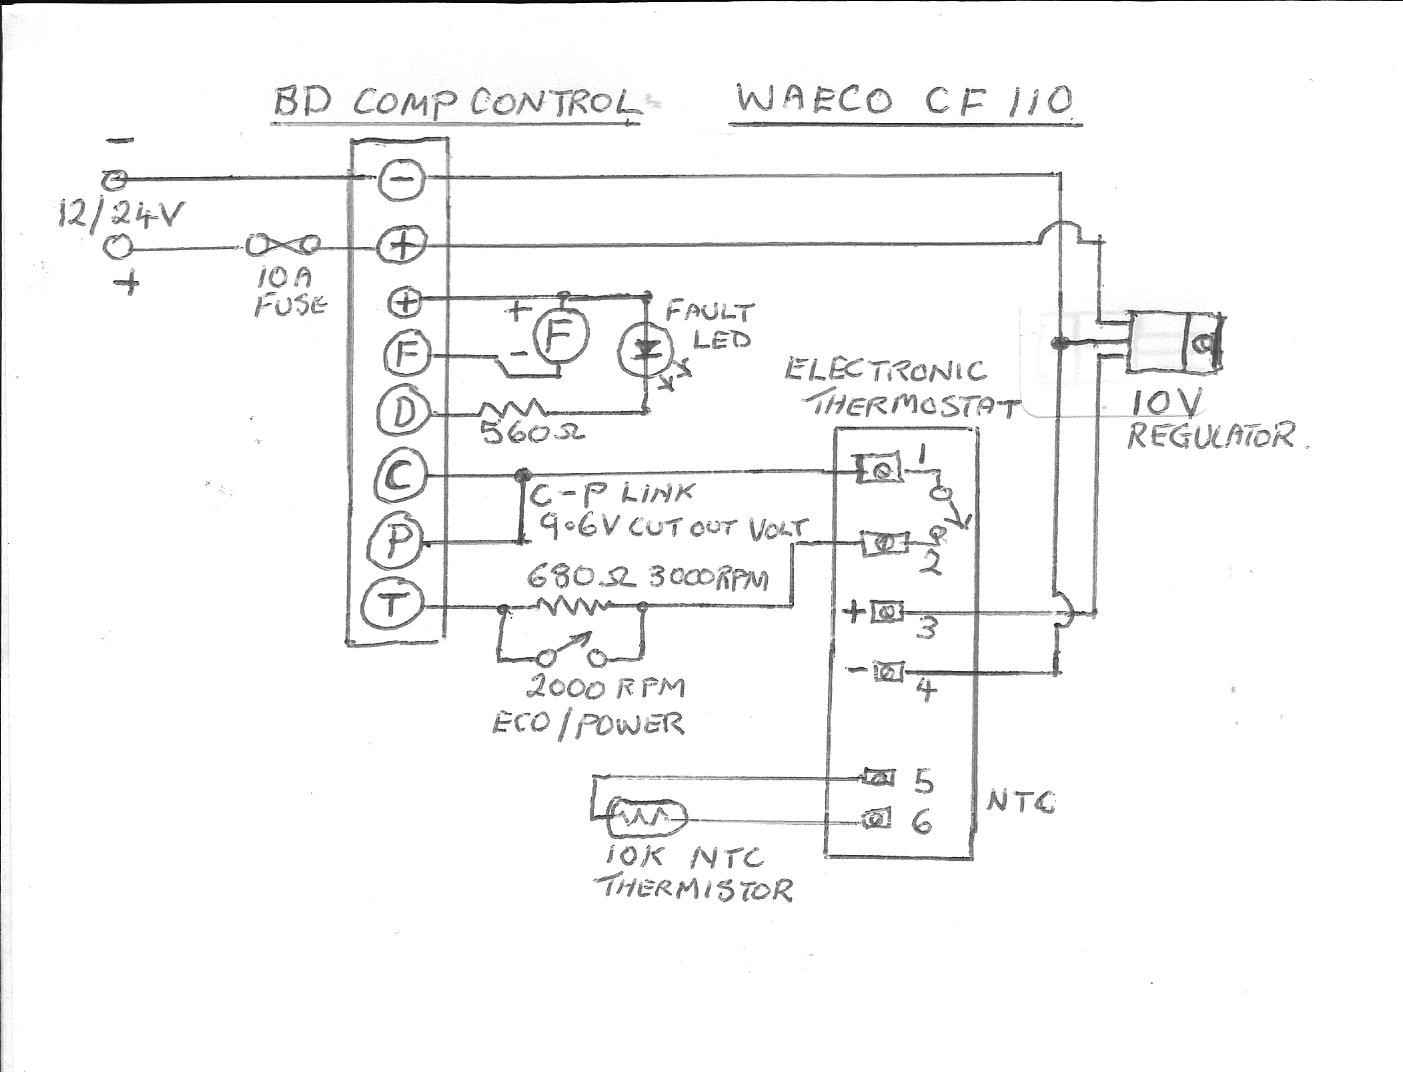 BD COMP CONTROL
WAECO CF 110
−
12/24V
+
10A
FUSE
−
+
+
F
D
C
P
T
+
−
F
FAULT
LED
560Ω
C-P LINK
9.6V CUT OUT VOLT
680Ω 3000RPM
2000 RPM
ECO/POWER
ELECTRONIC
THERMOSTAT
1
2
+ 3
− 4
5
6
NTC
10V
REGULATOR.
10K NTC
THERMISTOR